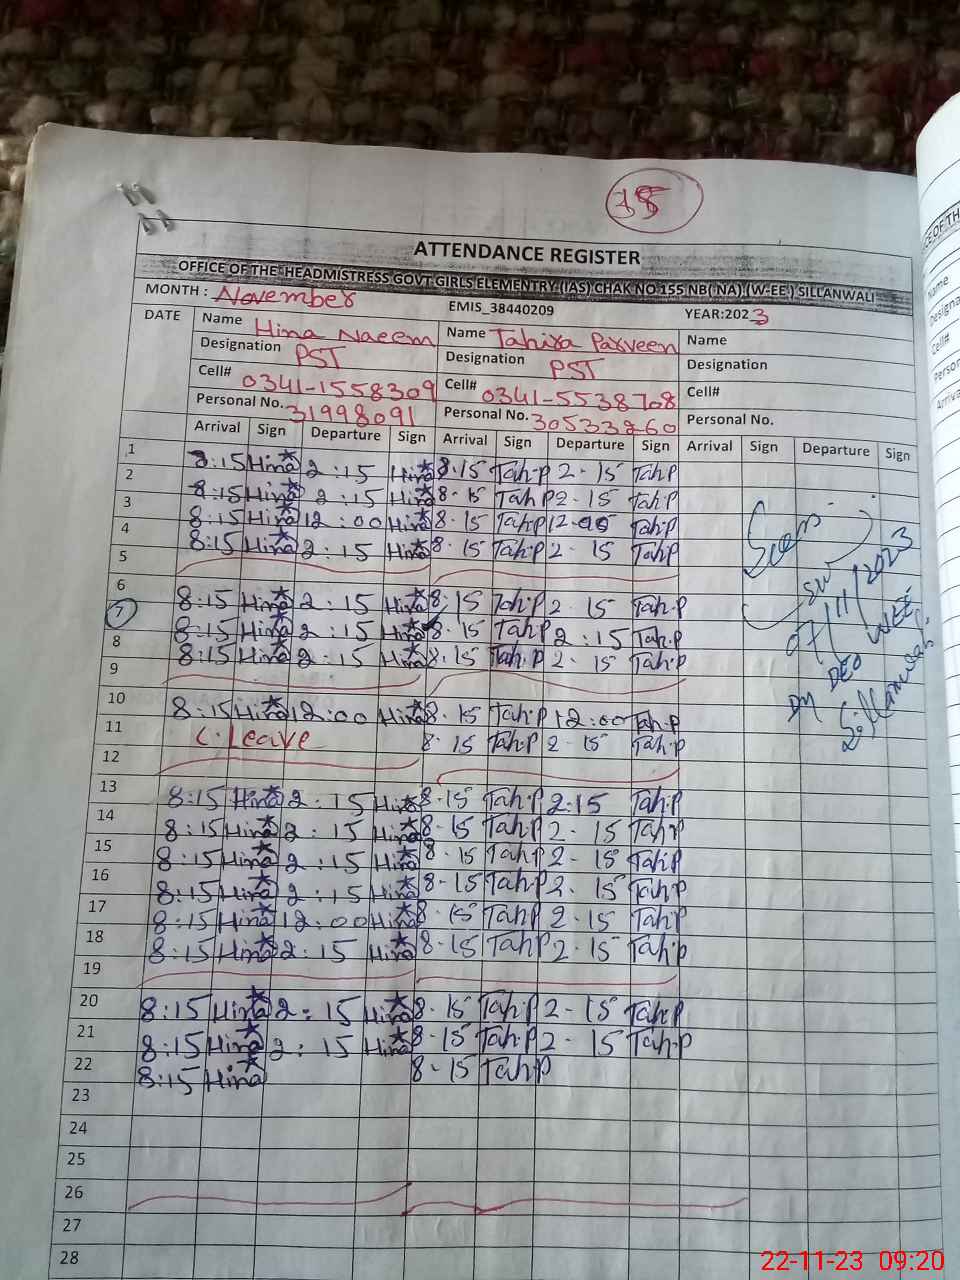 18
ATTENDANCE REGISTER
OFFICE OF THE HEADMISTRESS GOVT GIRLS ELEMENTRY (IAS) CHAK NO 155 NB( NA) (W-EE) SILLANWALI
MONTH : November EMIS_38440209 YEAR:2023
DATE Name Hina Naeem Name Tahira Parveen Name
Designation PST Designation PST Designation
Cell# 0341-1558309 Cell# 0341-5538708 Cell#
Personal No. 31998091 Personal No. 30533260 Personal No.
Arrival Sign Departure Sign Arrival Sign Departure Sign Arrival Sign Departure Sign
1 8:15 Hina 2:15 Hina 8-15 Tah.P 2-15 Tah.P
2 8:15 Hina 2:15 Hina 8-15 Tah.P 2-15 Tah.P
3 8:15 Hina 12:00 Hina 8-15 Tah.P 12-00 Tah.P
4 8:15 Hina 2:15 Hina 8-15 Tah.P 2-15 Tah.P
5
6 8:15 Hina 2:15 Hina 8-15 Tah.P 2-15 Tah.P
7 8:15 Hina 2:15 Hina 8-15 Tah.P 2:15 Tah.P
8 8:15 Hina 2:15 Hina 8-15 Tah.P 2-15 Tah.P
9
10 8:15 Hina 12:00 Hina 8-15 Tah.P 12:00 Tah.P
11 C.Leave 8-15 Tah.P 2-15 Tah.P
12
13 8:15 Hina 2:15 Hina 8-15 Tah.P 2:15 Tah.P
14 8:15 Hina 2:15 Hina 8-15 Tah.P 2-15 Tah.P
15 8:15 Hina 2:15 Hina 8-15 Tah.P 2-15 Tah.P
16 8:15 Hina 2:15 Hina 8-15 Tah.P 2-15 Tah.P
17 8:15 Hina 12:00 Hina 8-15 Tah.P 2-15 Tah.P
18 8:15 Hina 2:15 Hina 8-15 Tah.P 2-15 Tah.P
19
20 8:15 Hina 2:15 Hina 8-15 Tah.P 2-15 Tah.P
21 8:15 Hina 2:15 Hina 8-15 Tah.P 2-15 Tah.P
22 8:15 Hina 8-15 Tah.P
23
24
25
26
27
28
Seen
07/11/2023
Dy DEO WEE
Sillanwali
22-11-23 09:20